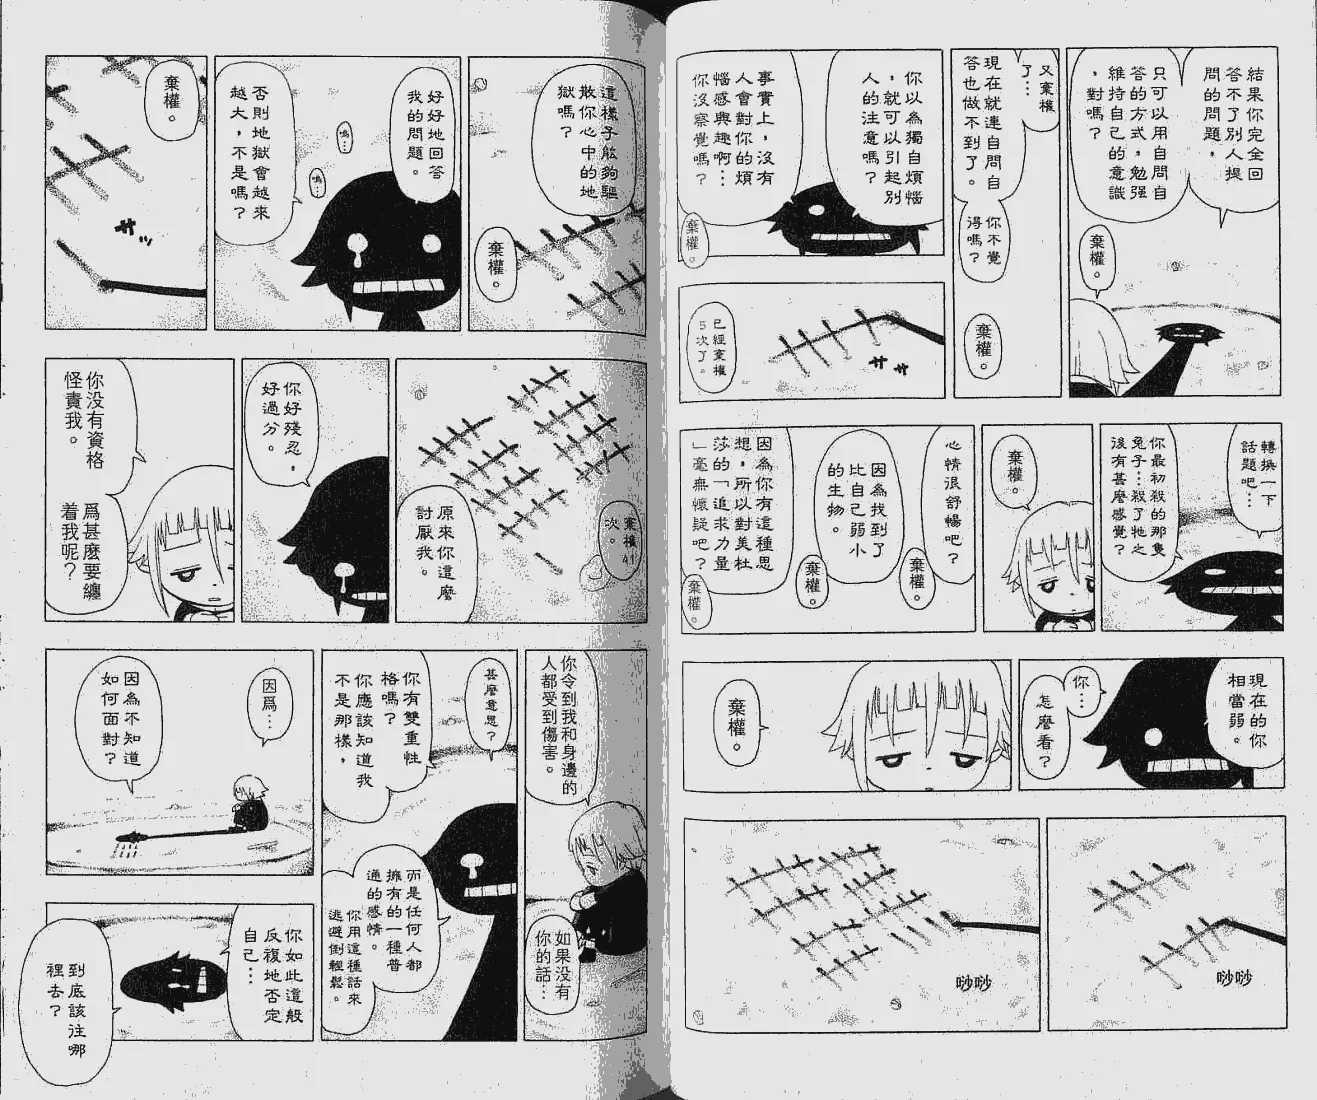 結果你完全回
答不了別人提
問的問題，
只可以用自問自
答的方式，勉强
維持自己的意識
，對嗎？
棄權。
又棄權
了…
現在就連自問自
答也做不到了。
你不覺
得嗎？
棄權。
你以為獨自煩惱
，就可以引起別
人的注意嗎？
事實上，沒有
人會對你的煩
惱感興趣啊…
你沒察覺嗎？
棄權。
已經棄權
5次了。
轉換一下
話題吧…
你最初殺的那隻
兔子…殺了牠之
後有甚麼感覺？
棄權。
心情很舒暢吧？
棄權。
因為找到了
比自己弱小
的生物。
棄權。
因為你有這種思
想，所以對美杜
莎的「追求力量
」毫無懷疑吧？
棄權。
現在的你
相當弱。
你…
怎麼看？
棄權。
唦唦
唦唦
這樣子能夠驅
散你心中的地
獄嗎？
棄權。
好好地回答
我的問題。
嗚…
嗚…
否則地獄會越來
越大，不是嗎？
棄權。
棄權41
次。
原來你這麼
討厭我。
你好殘忍，
好過分。
你没有資格
怪責我。
爲甚麼要纏
着我呢？
你令到我和身邊的
人都受到傷害。
如果没有
你的話…
甚麼意思？
你有雙重性
格嗎？
你應該知道我
不是那樣，
而是任何人都
擁有的一種普
通的感情。
你用這種話來
逃避倒輕鬆。
因爲…
因為不知道
如何面對？
你如此這般
反複地否定
自己…
到底該往哪
裡去？